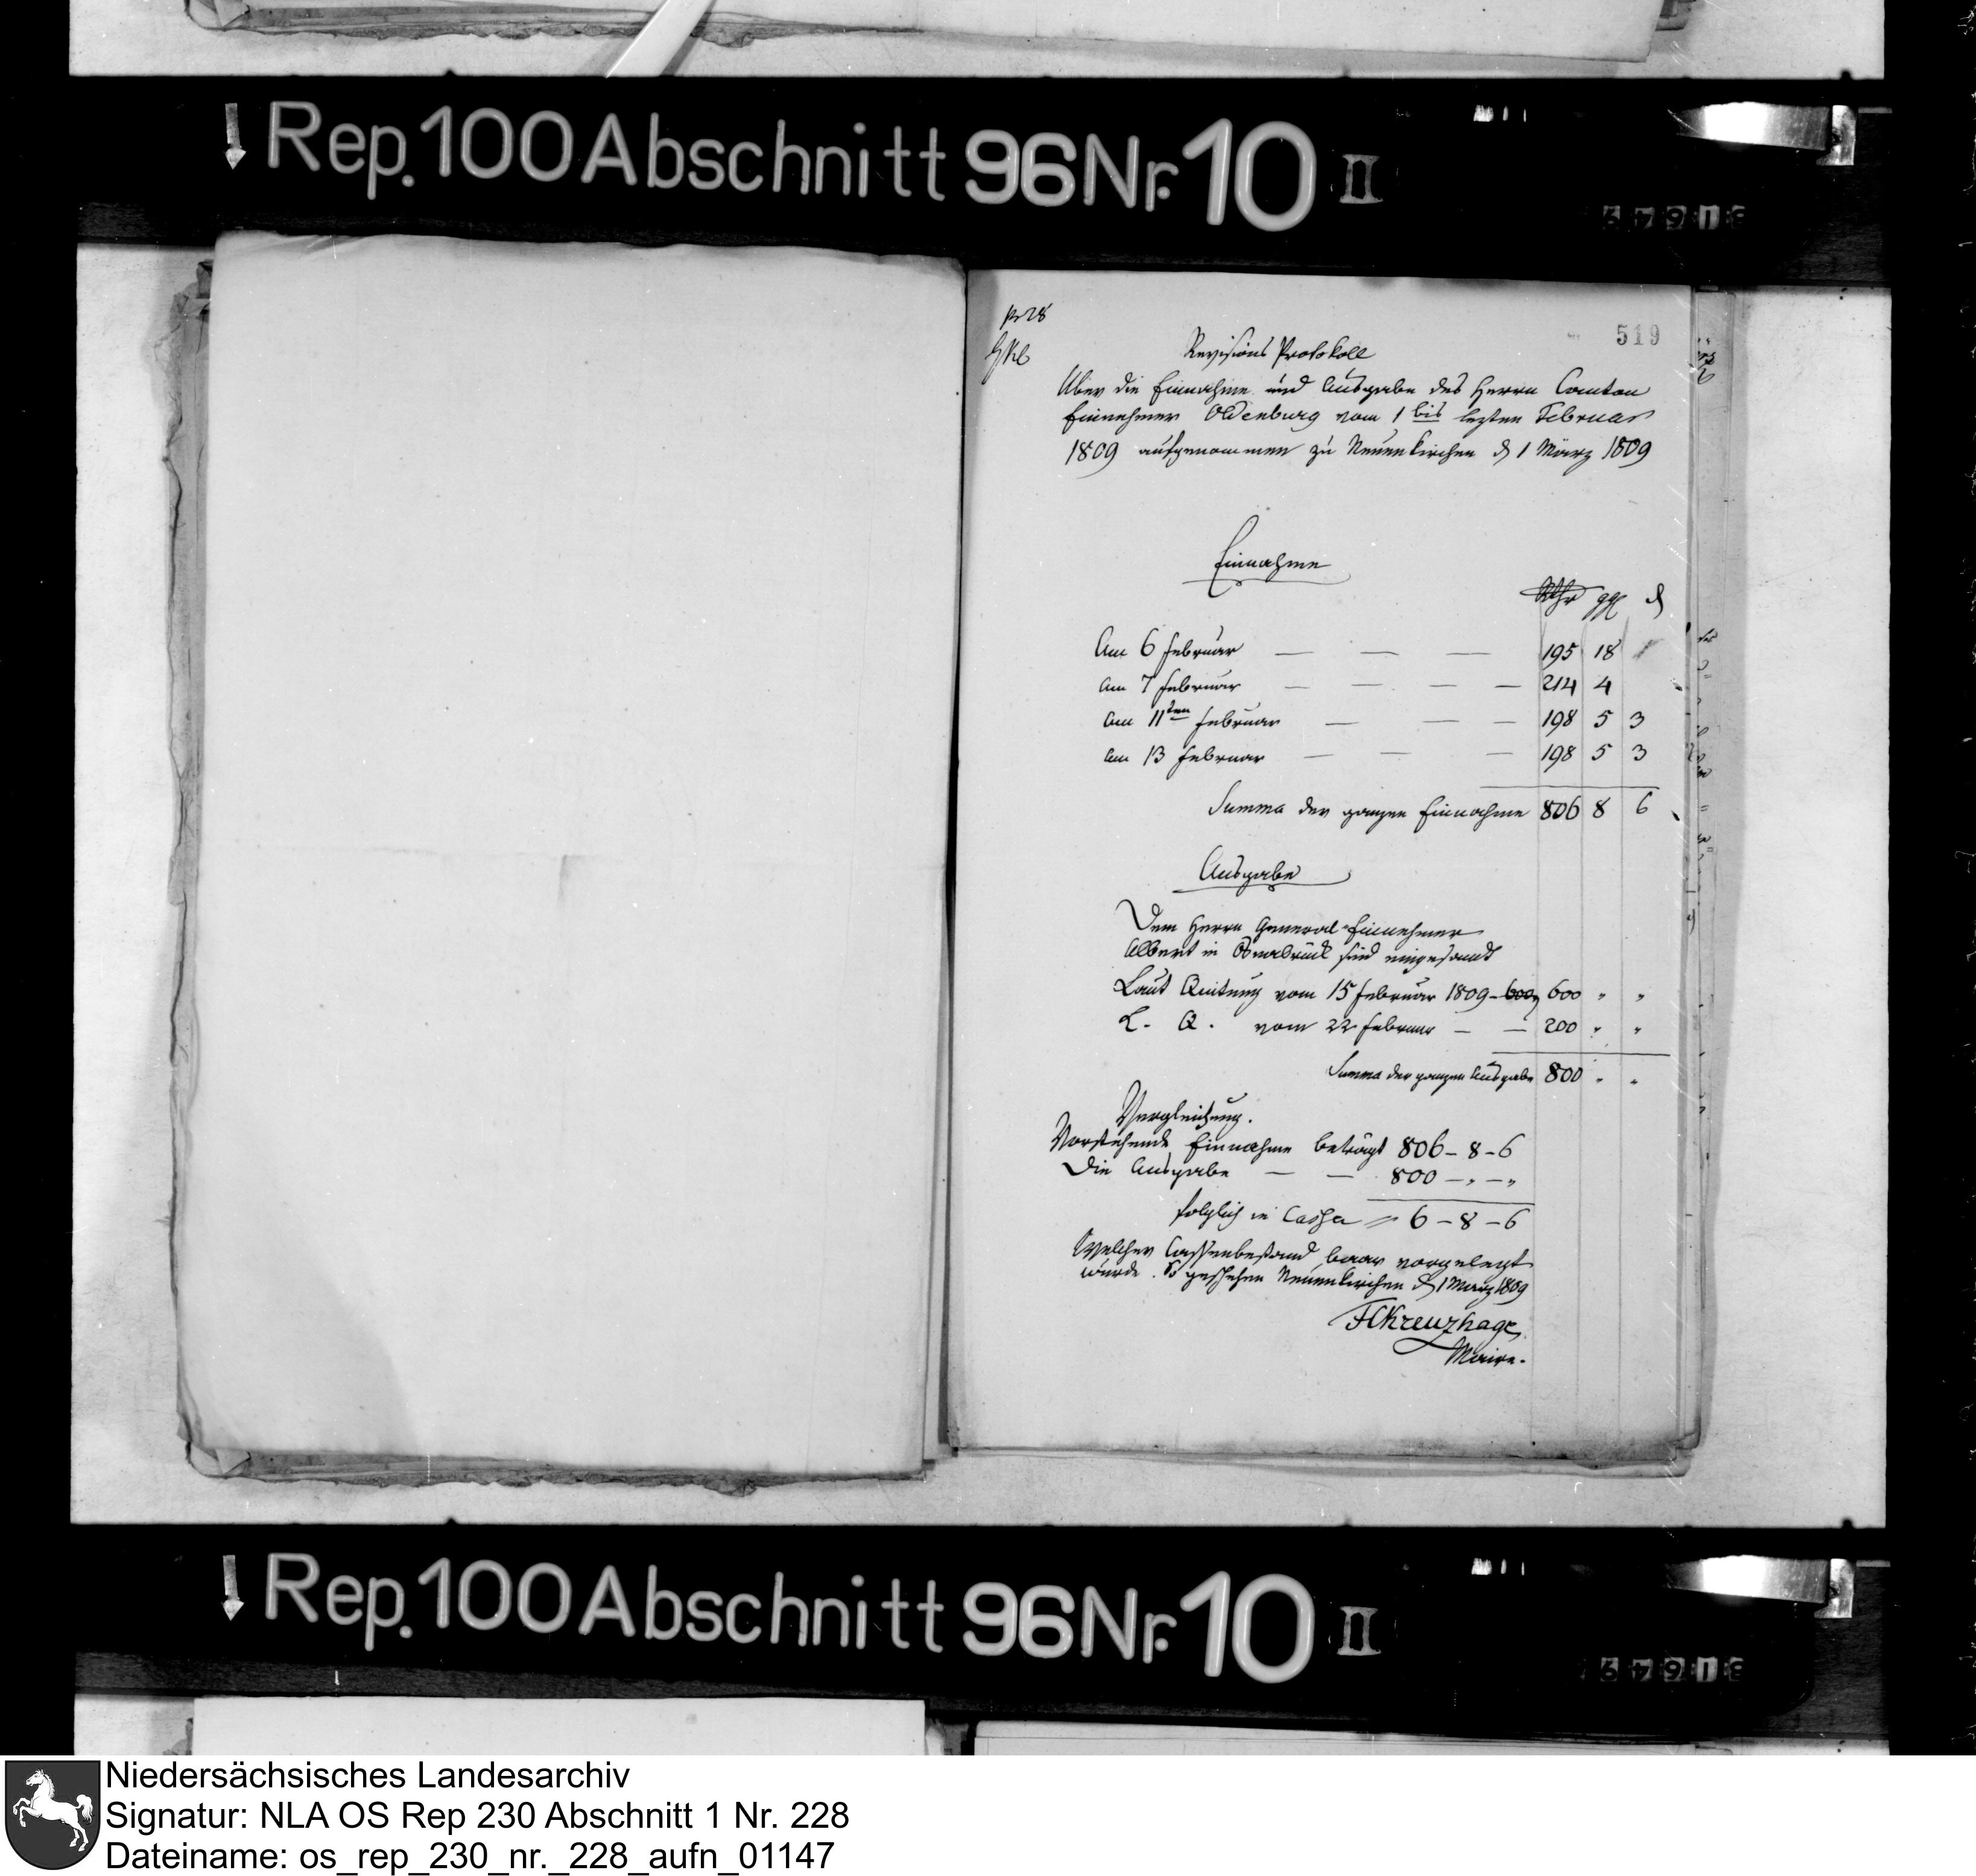 Rep. 100 Abschnitt 96 Nr. 10 II
31649
pr 28
519
Revisions Protokoll
Über die Einnahme und Ausgabe des Herrn Canton
Einnehmer Oldenburg vom 1 bis lezten Februar
1809 aufgenommen zu Neuenkirchen d 1 März 1809
Einnahme
Rthr ggl d
Am 6 Februar — — — 195 18
am 7 Februar — — — — 214 4
am 11ten Februar — — — 198 5 3
am 13 Februar — — — 198 5 3
Summa der ganzen Einnahme 806 8 6
Ausgabe
Dem Herrn General-Einnehmer
Albert in Osnabrück sind eingesandt
Laut Quitung vom 15 Februar 1809 - 600, 600 " "
L. Q. vom 22 Februar — — 200 " "
Summa der ganzen Ausgabe 800 " "
Vergleichung.
Vorstehende Einnahme beträgt 806 - 8 - 6
Die Ausgabe — — 800 - " - "
folglich in Cassa = 6 - 8 - 6
Welcher Cassenbestand baar vorgelegt
wurde. So geschehen Neuenkirchen d 1 März 1809
FCKreuzhage
Maire.
Rep. 100 Abschnitt 96 Nr. 10 II
31649
Niedersächsisches Landesarchiv
Signatur: NLA OS Rep 230 Abschnitt 1 Nr. 228
Dateiname: os_rep_230_nr._228_aufn_01147